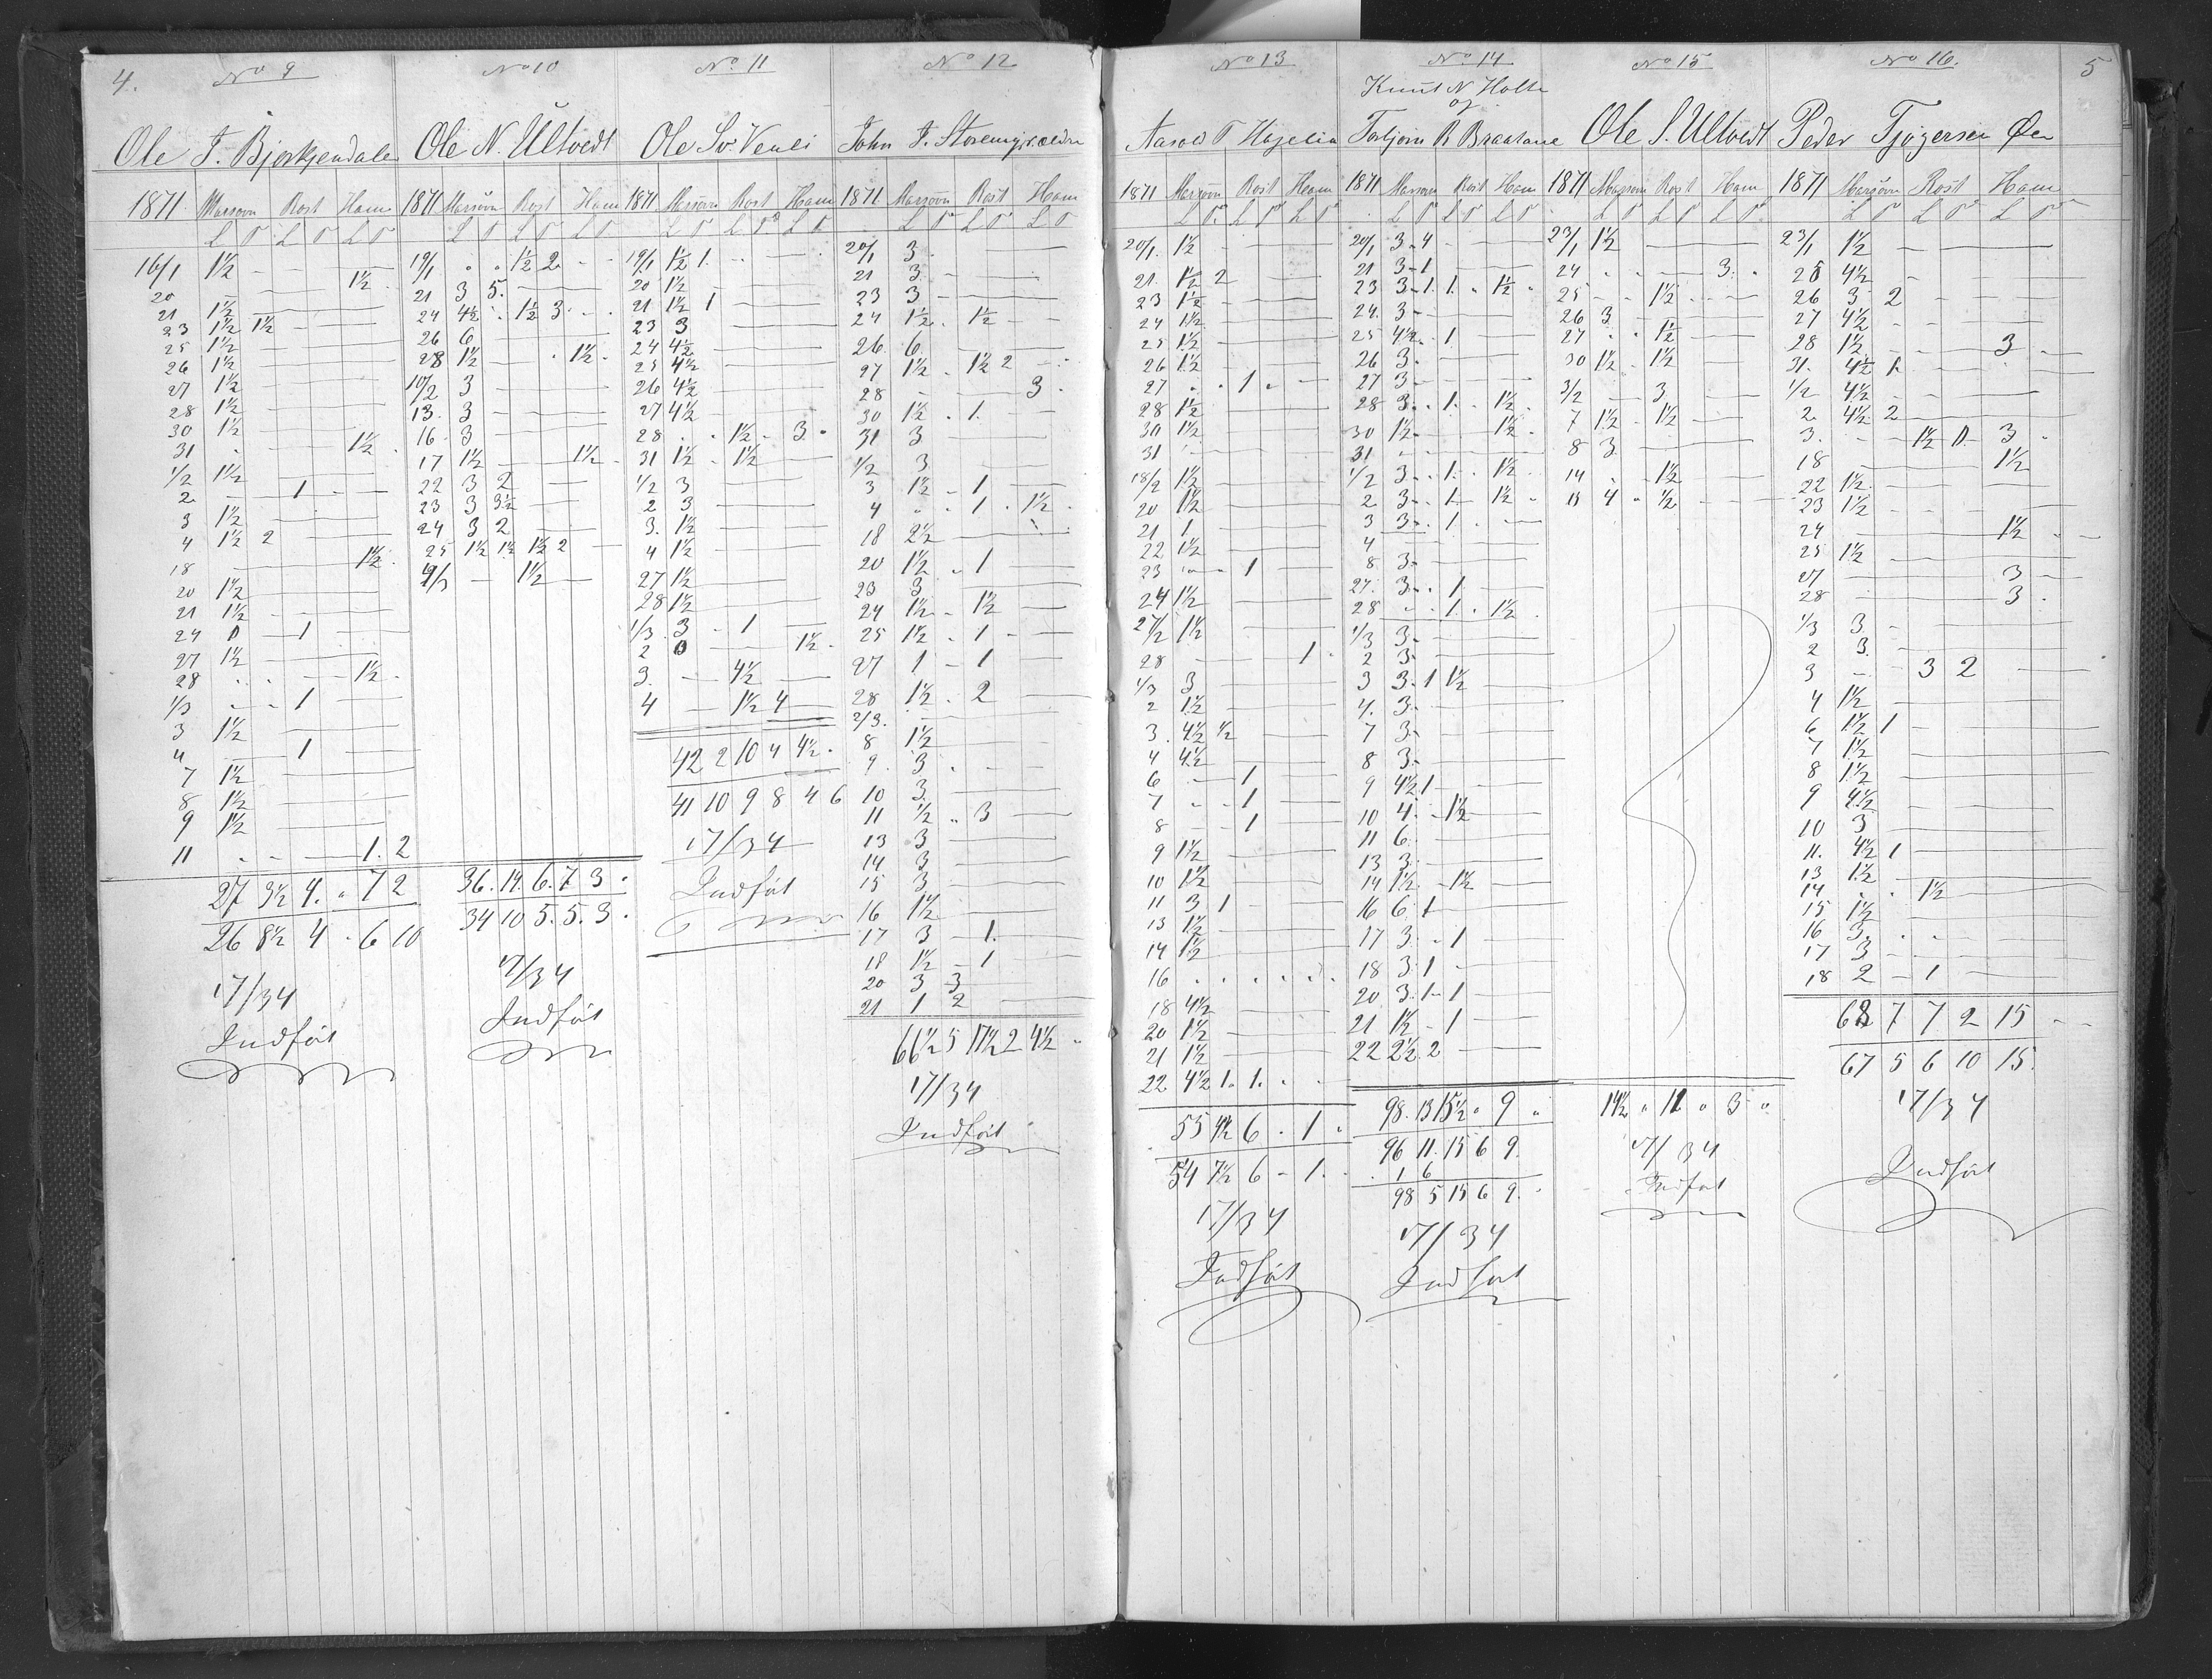 4.
No 9
Ole T. Bjerkjendalen
1871 Massovn Rost Ham
L P L P L P
16/1 1½ — — —
20 — — 1½
21 1½ — —
23 1½ 1½ — —
25 1½ — —
26 1½ — —
27 1½ — —
28 1½ — —
30 1½ — —
31 . — 1½ .
1/2 1½ — —
2 — 1 — —
3 1½ — —
4 1½ 2 — —
18 — — 1½ .
20 1½ — —
21 1½ — —
24 0 — 1 —
27 1½ — —
28 . . — 1½ .
1/3 — . 1 —
3 1½ — —
4 — 1 —
7 1½ — —
8 1½ — —
9 1½ — —
11 . . — 1. 2
27 3½ 4. " 7 2
26 8½ 4 . 6 10
17/34
Indført
No 10
Ole N. Ultvedt
1871 Massovn Rost Ham
L P L P L P
19/1 . . 1½ 2 . .
21 3 5. — —
24 4½ . 1½ 3 . .
26 6 — —
28 1½ — . 1½ .
10/2 3 — —
13. 3 — —
16. 3 — —
17 1½ — 1½ .
22 3 2 —
23 3 3½ —
24 3 2 —
25 1½ 1½ 1½ 2 —
9/3 — 1½ —
36. 14. 6. 7 3 .
34 10 5. 5. 3 .
17/34
Indført
No 11
Ole Sv. Venli
1871 Massovn Rost Ham
L P L P L P
19/1 1½ 1. . . —
20 1½ — —
21 1½ 1 — —
23 3 — —
24 4½ — —
25 4½ — —
26 4½ — —
27 4½ — —
28 . . 1½ . 3 .
31 1½ . 1½ —
1/2 3 — —
2 3 — —
3. 1½ — —
4 1½ — —
27 1½ — —
28 1½ — —
1/3 3 . 1 —
2 0 — 1½ .
3. — 4½ —
4 — 1½ 4 —
42 2 10 4 4½ .
41 10 9 8 4 6
17/34
Indført
No 12
John J. Storemyr. ældre
1871 Massovn Rost Ham
L P L P L P
20/1 3 . — —
21 3 . — —
23 3 — —
24 1½ . 1½ — —
26. 6. — —
27 1½ . 1½ 2 — .
28 — — 3 .
30 1½ . 1. —
31 3 — —
1/2 3 — —
3 1½ . 1 —
4 . . 1 . 1½ .
18 2½ — —
20 1½ . 1 —
23 3 — —
24 1½ . 1½ —
25 1½ . 1 . —
27 1 . 1 —
28 1½ . 2 —
2/3. — —
8 1½ — —
9. 3 . — —
10 3 — —
11 1½ . 3 —
13 3 — —
14 3 — —
15 3 — —
16 1½ — —
17 3 . 1. —
18 1½ — 1 —
20 3 3 —
21 1 2 —
66½ 5 17½ 2 4½ .
17/34
Indført
5
No 13
Aasold T Hagelia
1871 Massovn Rost Ham
L P L P L P
20/1. 1½ — —
21. 1½ 2 — —
23 1½ — —
24 1½ — —
25 1½ — —
26 1½ — —
27 . . 1 . —
28 1½ — —
30 1½ — —
31 . — —
18/2 1½ — —
20 1½ — —
21 1 — —
22 1½ — —
23 . . 1 —
24 1½ — —
27/2 1½ — —
28 — — 1 .
1/3 3 — —
2 1½ — —
3. 4½ ½ — —
4 4½ — —
6 — 1 —
7 . . 1 —
8 — 1 —
9 1½ — —
10 1½ — —
11 3 1 — —
13 1½ — —
14 1½ — —
16 . . . . . .
18 4½ — —
20 1½ — —
21 1½ — —
22 4½ 1. 1. . .
55 4½ 6 . 1 .
54 7½ 6 - 1.
17/34
Indført
No 14
Knut N. Holte
og
Torbjørn R Braatane
1871 Massovn Rost Ham
L P L P L P
20/1 3 . 4 — —
21 3 . 1 — —
23 3 . 1. 1. . 1½ .
24. 3 . — —
25 4½ . 1 —
26 3 . — —
27 3 . — —
28 3 . . 1. . 1½ .
30 1½ . — 1½ .
31 — —
1/2 3 . . 1. . 1½ .
2 3 . . 1. — 1½ .
3 3 . . 1 . —
4 — —
8 3 . — —
27. 3 . . 1 —
28 . . 1. . 1½ .
1/3 3 . — —
2 3 . — —
3 3 . 1 1½ —
4. 3 . — —
7 3 . — —
8 3 . — —
9 4½ 1 — —
10 4. . 1½ —
11 6. — —
13 3 . — —
14 1½ . 1½ —
16 6. 1 — —
17 3 . . 1 —
18 3. 1 . —
20 3. 1 . 1 —
21 1½ . 1 —
22 2½. 2 —
98. 13 15½ . 9 .
96 11. 15 6 9.
. 1 6
98 5 15 6 9. .
17/34
Indført
No 15
Ole S. Ultvedt
1871 Massovn Rost Ham
L P L P L P
23/1 1½ — —
24 . . — 3 . .
25 — . 1½ . . —
26 3 — —
27 . . 1½ —
30 1½ . 1½ —
3/2 — 3 —
7 1½ . 1½ —
8 3 — —
14 . . 1½ —
15 4 . ½ . —
14½ . 11 . 3 .
17/34
Indført
No 16.
Peder Tjøgersen Øen
1871 Massovn Rost Ham
L P L P L P
23/1 1½ — —
25 4½ — —
26 3 2 — —
27 4½ — —
28 1½ — 3 .
31. 4½ 1. — .
1/2 4½ — —
2. 4½ 2 — —
3. — 1½ 0. 3 .
18 — — 1½
22 1½ — —
23 1½ — —
24 — — 1½ . .
25 1½ — —
27 — — 3 —
28 — — 3 .
1/3 3 . —
2 3. —
3 — . 3 2 —
4 1½ — —
6 1½ 1 — —
7 1½ — —
8 1½ — —
9 4½ — —
10 3 — —
11. 4½ 1 — —
13 1½ — —
14 . . 1½ —
15 1½ — —
16 3. . . —
17 3 — —
18 2 — 1 —
68 7 7 2 15 . .
67 5 6 10 15.
17/34
Indført